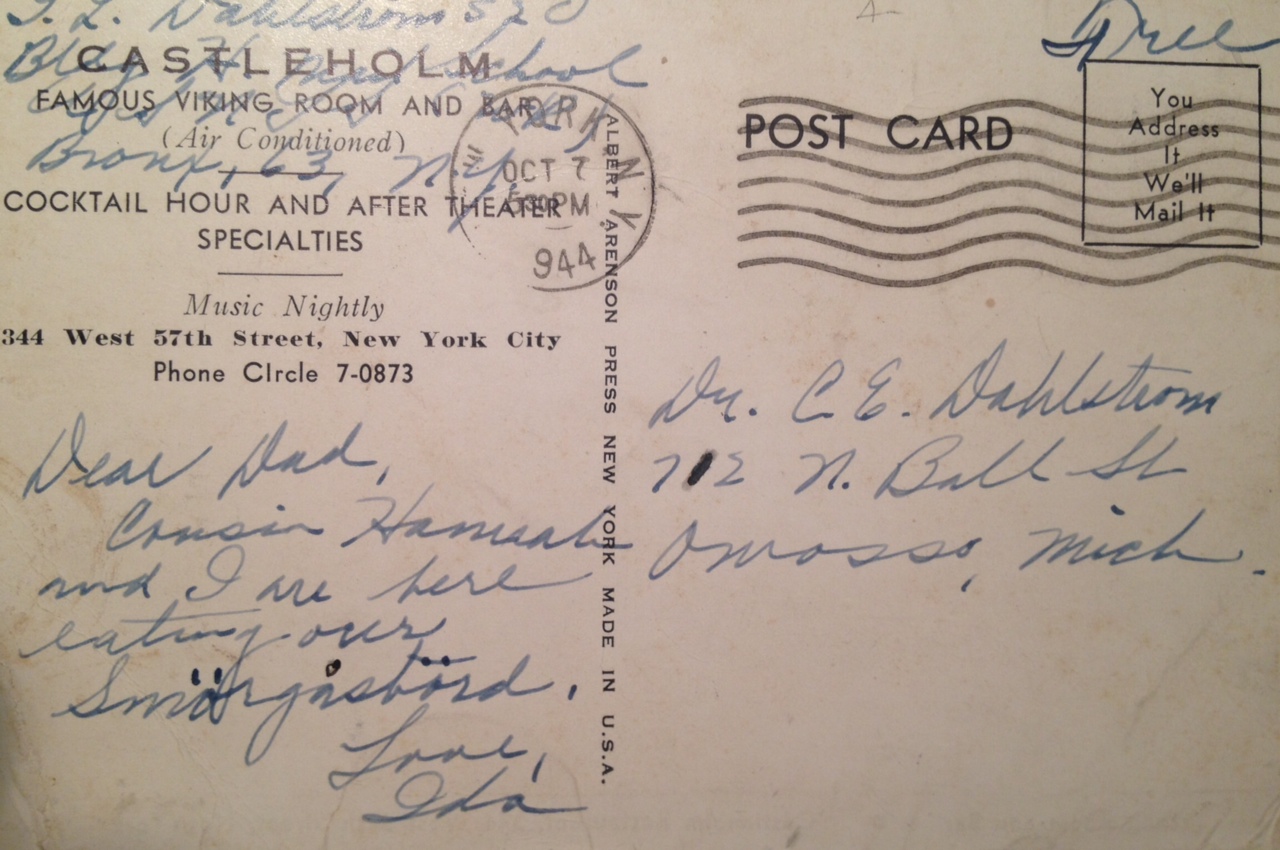 Dahlstrom S 2 C
Bldg School
CASTLEHOLM
FAMOUS VIKING ROOM AND BAR
(Air Conditioned)
Bronx, 63, N.Y.
COCKTAIL HOUR AND AFTER THEATER
SPECIALTIES
Music Nightly
344 West 57th Street, New York City
Phone CIrcle 7-0873
Dear Dad,
Cousin
and I are here
eating our
Smörgåsbörd.
Love,
Ida
YORK N Y
OCT 7
PM
944
ALBERT ARENSON PRESS NEW YORK MADE IN U.S.A.
Free
POST CARD
You
Address
It
We'll
Mail It
Dr. C. E. Dahlstrom
712 N. Ball St
Owosso, Mich.